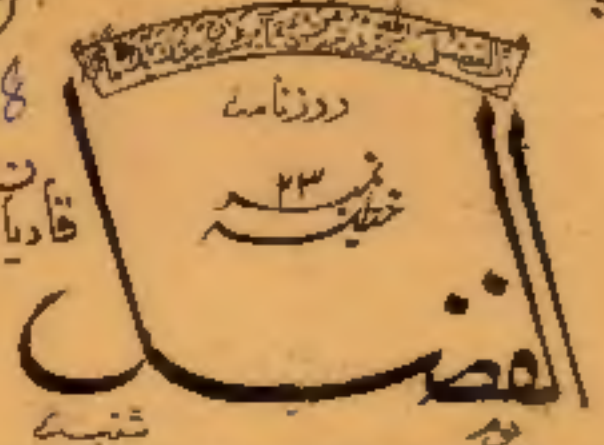 روزنامہ
خطبہ نمبر ۲۳
قادیان
الفضل
یوم شنبہ